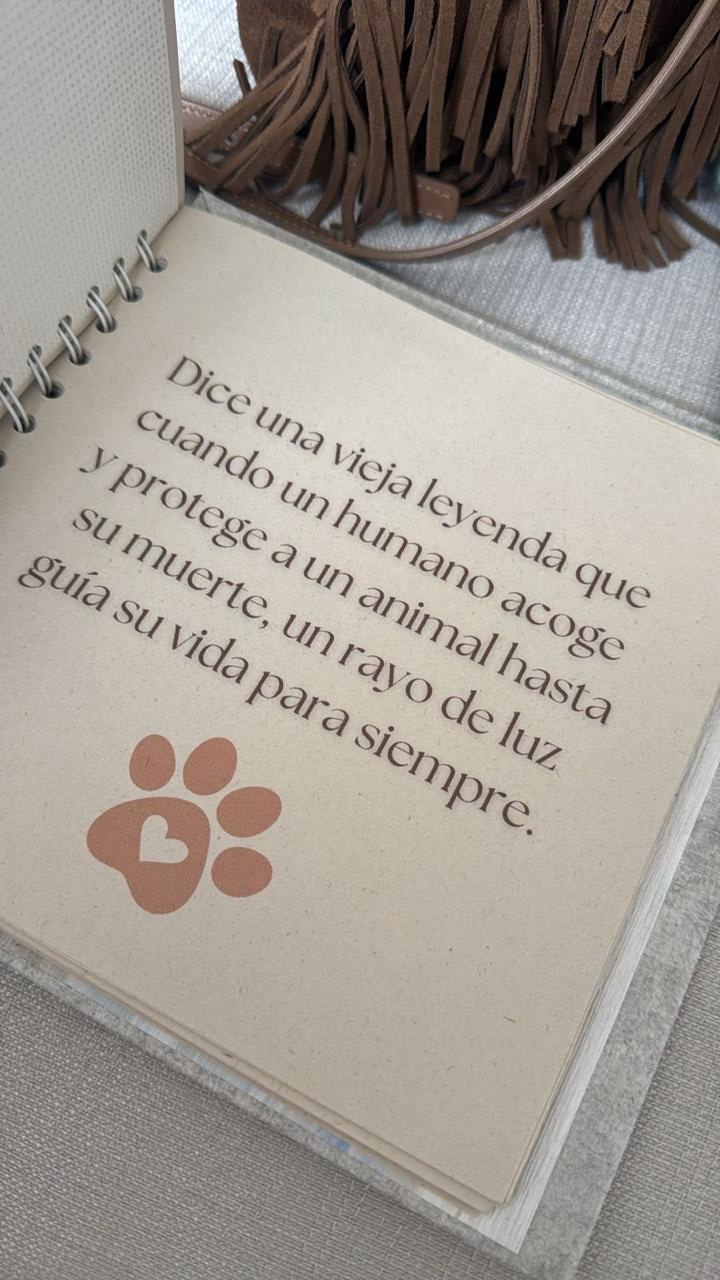 Dice una vieja leyenda que
cuando un humano acoge
y protege a un animal hasta
su muerte, un rayo de luz
guía su vida para siempre.